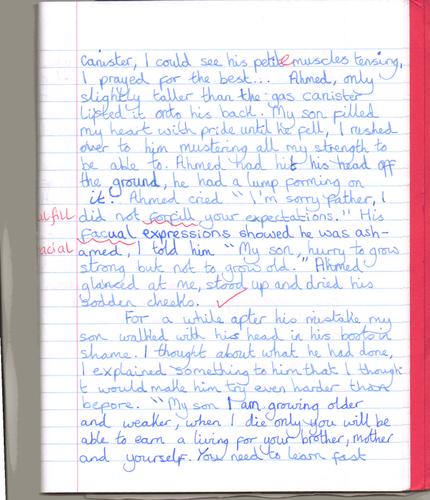 canister, I could see his petite muscles tensing,
I prayed for the best... Ahmed, only
slightly taller than the gas canister
lipted it onto his back. My son filled
my heart with pride until he fell, I rushed
over to him mustering all my strength to
be able to. Ahmed had hit his head off
the ground, he had a lump forming on
it. Ahmed cried "I'm sorry father, I
ulfill did not forfill your expectations." His
facual expressions showed he was ash-
acial amed, I told him "My son, hurry to grow
strong but not to grow old." Ahmed
glanced at me, stood up and dried his
sodden cheeks.
For a while after his mistake my
son walked with his head in his boots in
shame. I thought about what he had done,
I explained something to him that I though
t would make him try even harder than
bepore. "My son I am growing older
and weaker, when I die only you will be
able to earn a living for your brother, mother
and yourself. You need to learn fast